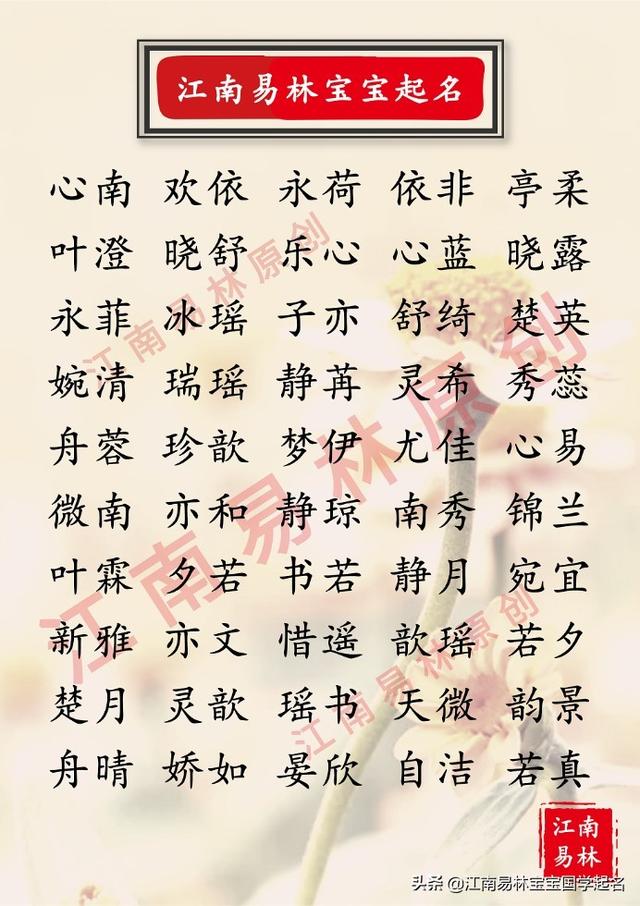 江南易林宝宝起名
心南 欢依 永荷 依非 亭柔
叶澄 晓舒 乐心 心蓝 晓露
永菲 冰瑶 子亦 舒绮 楚英
婉清 瑞瑶 静苒 灵希 秀蕊
舟蓉 珍歆 梦伊 尤佳 心易
微南 亦和 静琼 南秀 锦兰
叶霖 夕若 书若 静月 宛宜
新雅 亦文 惜遥 歆瑶 若夕
楚月 灵歆 瑶书 天微 韵景
舟晴 娇如 晏欣 自洁 若真
江南易林原创
江南易林原创
江南易林原创
江南
易林
头条 @江南易林宝宝国学起名